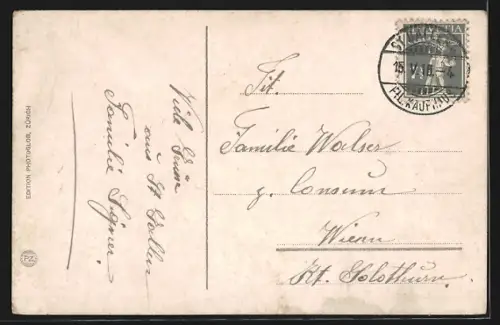 EDITION PHOTOGLOB, ZÜRICH
PZ
Viele Grüsse
aus St. Gallen
Familie Signer.
HELVETIA
ST. GALLEN
15.V.15. 4
FIL. KAUFHAUS
Tit.
Familie Walser
z. Consum
Kt. Solothurn.